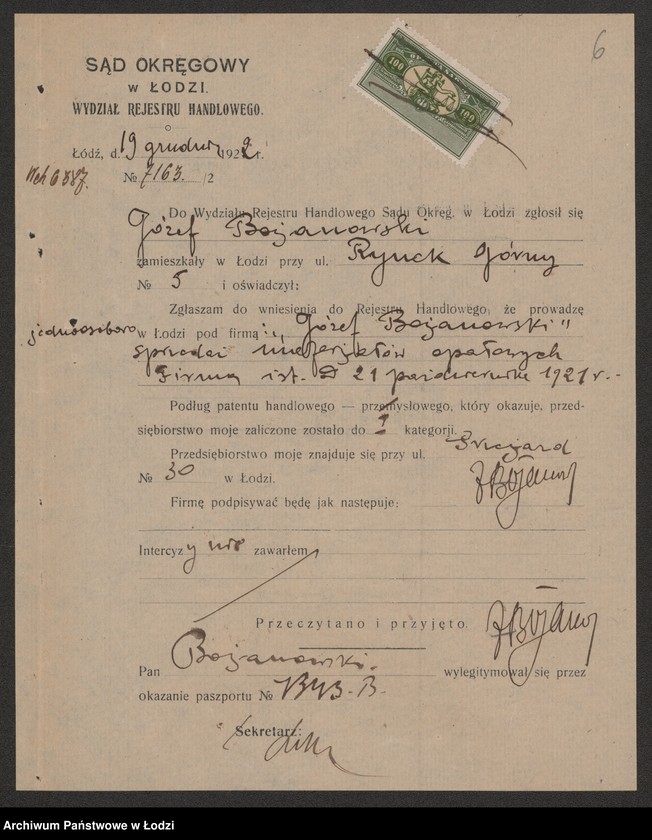 6
SĄD OKRĘGOWY
w ŁODZI.
WYDZIAŁ REJESTRU HANDLOWEGO.
100 100
Łódź, d. 19 grudnia 1922 r.
№ 7163. /2
Do Wydziału Rejestru Handlowego Sądu Okręg. w Łodzi zgłosił się
Józef Bojanowski
zamieszkały w Łodzi przy ul. Rynek Górny
№ 5 i oświadczył:
Zgłaszam do wniesienia do Rejestru Handlowego, że prowadzę
jednoosobowo w Łodzi pod firmą: „Józef Bojanowski"
sprzedaż materjałów opałowych
Firma ist. od 21 października 1921 r. -
Podług patentu handlowego — przemysłowego, który okazuje, przed-
siębiorstwo moje zaliczone zostało do I kategorji.
Przedsiębiorstwo moje znajduje się przy ul.
№ 30 w Łodzi.
JBojanow
Firmę podpisywać będę jak następuje:
Intercyzy nie zawarłem
Przeczytano i przyjęto.
JBojanow
Pan Bojanowski. wylegitymował się przez
okazanie paszportu №
Sekretarz:
Archiwum Państwowe w Łodzi